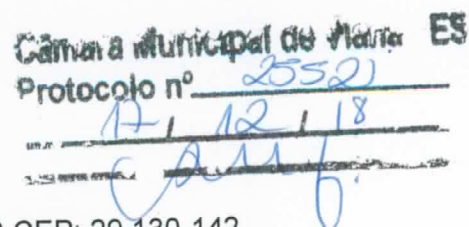 Câmara Municipal de Viana ES
Protocolo nº 25521
17 / 12 / 18
CEP: 29.130-142